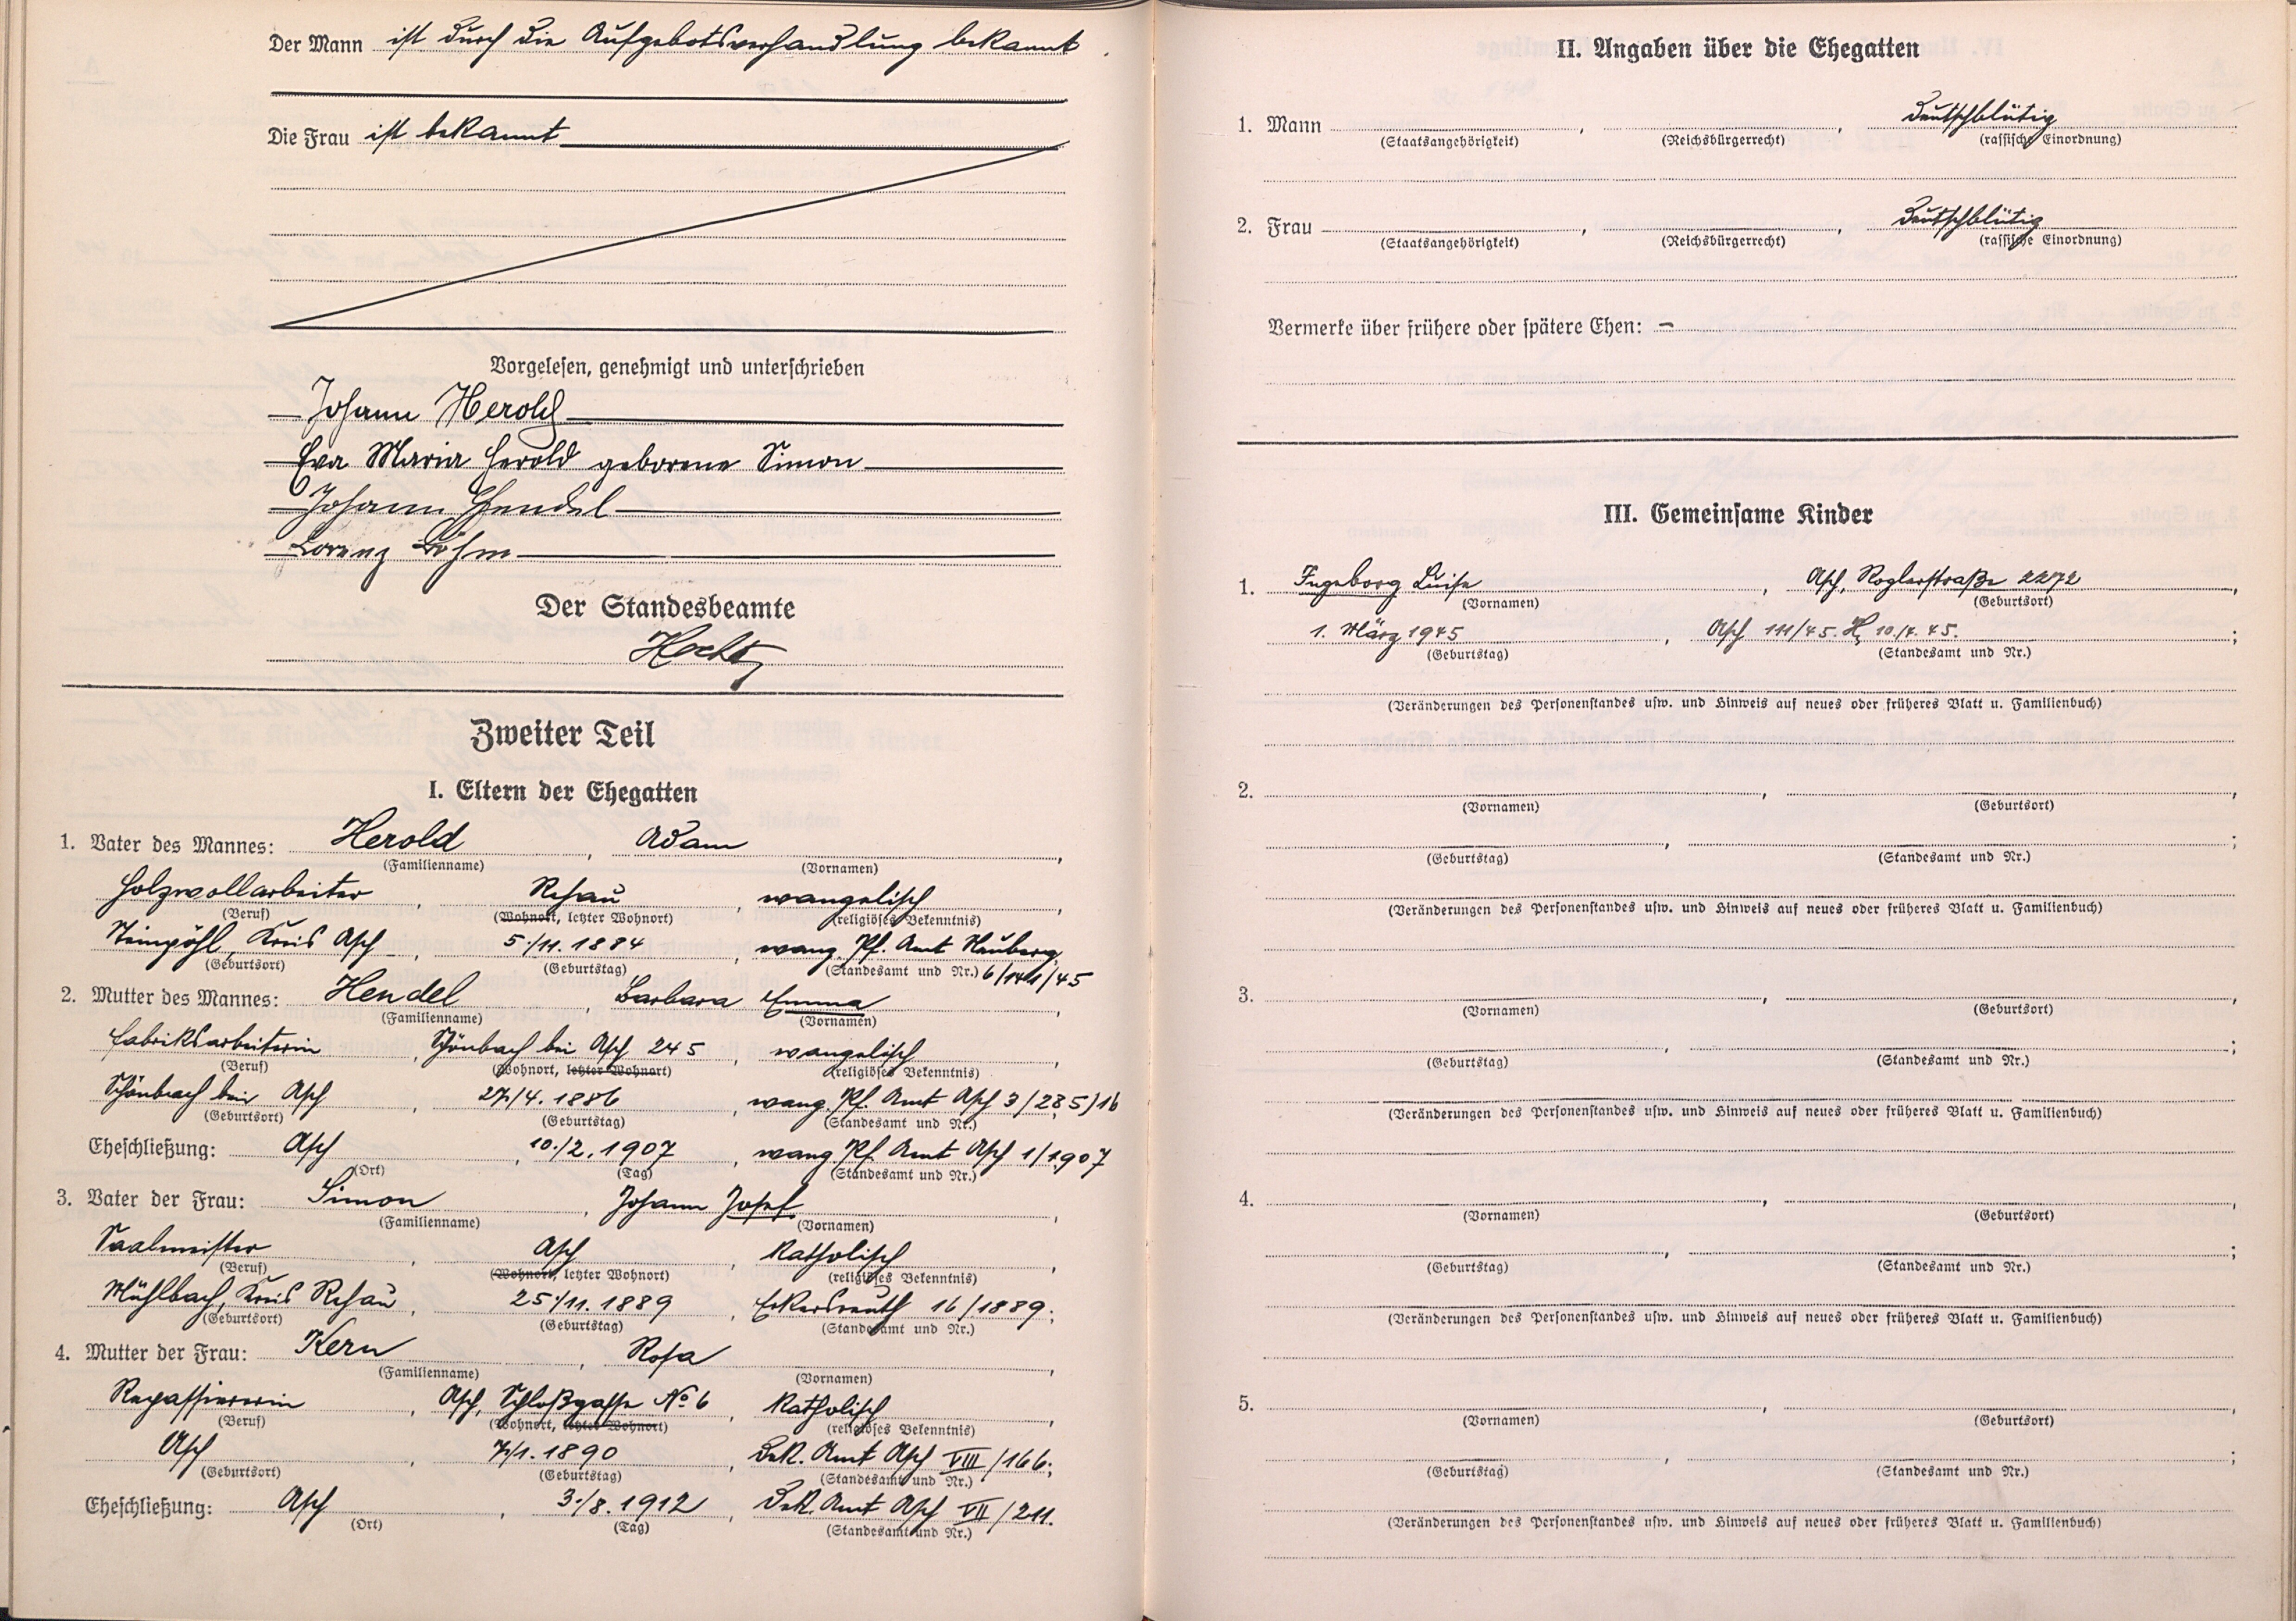 Der Mann ist durch die Aufgebotsverhandlung bekannt.
Die Frau ist bekannt
Vorgelesen, genehmigt und unterschrieben
Johann Herold
Eva Maria Herold geborene Simon
Johann Hendel
Lorenz Böhm
Der Standesbeamte
Zweiter Teil
I. Eltern der Ehegatten
1. Vater des Mannes: Herold, Adam,
(Familienname) (Vornamen)
Holzwollarbeiter, Rehau, evangelisch,
(Beruf) (Wohnort, letzter Wohnort) (religiöses Bekenntnis)
Steinpöhl, Kreis Asch, 5./11. 1884, evang. Pf. Amt Neuberg,
(Geburtsort) (Geburtstag) (Standesamt und Nr.) 6/141/45
2. Mutter des Mannes: Hendel, Barbara Emma,
(Familienname) (Vornamen)
Fabriksarbeiterin, Schönbach bei Asch 245, evangelisch,
(Beruf) (Wohnort, letzter Wohnort) (religiöses Bekenntnis)
Schönbach bei Asch, 27./4. 1886, evang. Pf. Amt Asch 3/235/16
(Geburtsort) (Geburtstag) (Standesamt und Nr.)
Eheschließung: Asch, 10./2. 1907, evang. Pf. Amt Asch 1/1907
(Ort) (Tag) (Standesamt und Nr.)
3. Vater der Frau: Simon, Johann Josef,
(Familienname) (Vornamen)
Saalmeister, Asch, katholisch,
(Beruf) (Wohnort, letzter Wohnort) (religiöses Bekenntnis)
Mühlbach, Kreis Rehau, 25./11. 1889, Erkersreuth 16/1889;
(Geburtsort) (Geburtstag) (Standesamt und Nr.)
4. Mutter der Frau: Kern, Rosa,
(Familienname) (Vornamen)
Repassiererin, Asch, Schloßgasse No 6, katholisch,
(Beruf) (Wohnort, letzter Wohnort) (religiöses Bekenntnis)
Asch, 7./1. 1890, Dek. Amt Asch VIII/166;
(Geburtsort) (Geburtstag) (Standesamt und Nr.)
Eheschließung: Asch, 3./8. 1912, Dek. Amt Asch VII/211.
(Ort) (Tag) (Standesamt und Nr.)
II. Angaben über die Ehegatten
1. Mann , , Deutschblütig
(Staatsangehörigkeit) (Reichsbürgerrecht) (rassische Einordnung)
2. Frau , , Deutschblütig
(Staatsangehörigkeit) (Reichsbürgerrecht) (rassische Einordnung)
Vermerke über frühere oder spätere Ehen: –
III. Gemeinsame Kinder
1. Ingeborg Luise, Asch, Roglerstraße 2272,
(Vornamen) (Geburtsort)
1. März 1945, Asch 111/45. 10./4. 45.;
(Geburtstag) (Standesamt und Nr.)
(Veränderungen des Personenstandes usw. und Hinweis auf neues oder früheres Blatt u. Familienbuch)
2. , ,
(Vornamen) (Geburtsort)
, ;
(Geburtstag) (Standesamt und Nr.)
(Veränderungen des Personenstandes usw. und Hinweis auf neues oder früheres Blatt u. Familienbuch)
3. , ,
(Vornamen) (Geburtsort)
, ;
(Geburtstag) (Standesamt und Nr.)
(Veränderungen des Personenstandes usw. und Hinweis auf neues oder früheres Blatt u. Familienbuch)
4. , ,
(Vornamen) (Geburtsort)
, ;
(Geburtstag) (Standesamt und Nr.)
(Veränderungen des Personenstandes usw. und Hinweis auf neues oder früheres Blatt u. Familienbuch)
5. , ,
(Vornamen) (Geburtsort)
, ;
(Geburtstag) (Standesamt und Nr.)
(Veränderungen des Personenstandes usw. und Hinweis auf neues oder früheres Blatt u. Familienbuch)